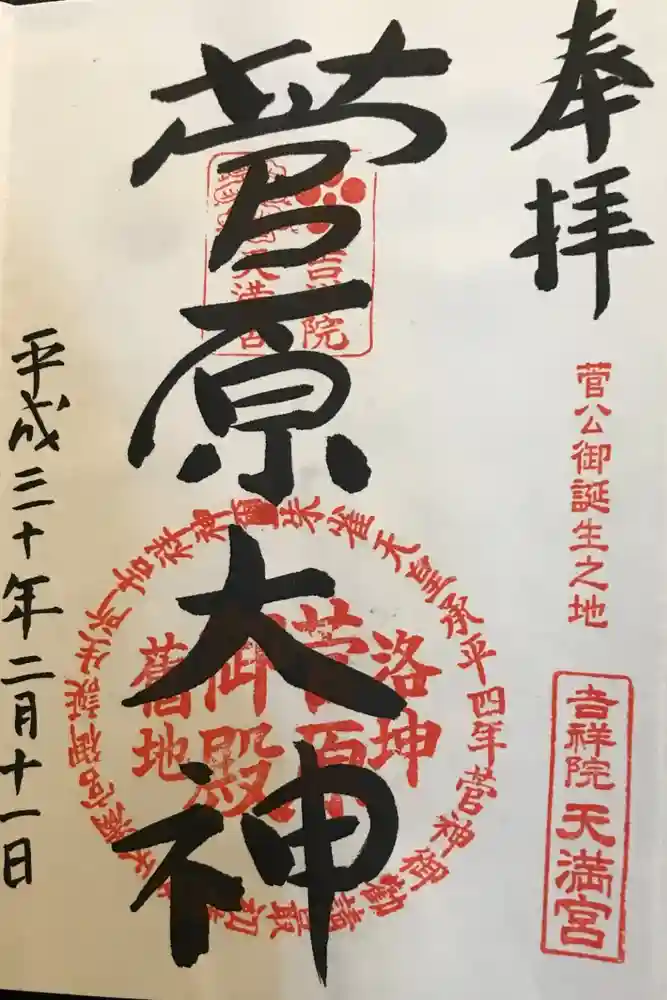 奉拝
菅公御誕生之地
吉祥院天満宮
菅原大神
吉祥院
天満宮
朱雀天皇承平四年菅神御勧請最初
洛坤
菅原
御殿
舊地
平成三十年二月十一日